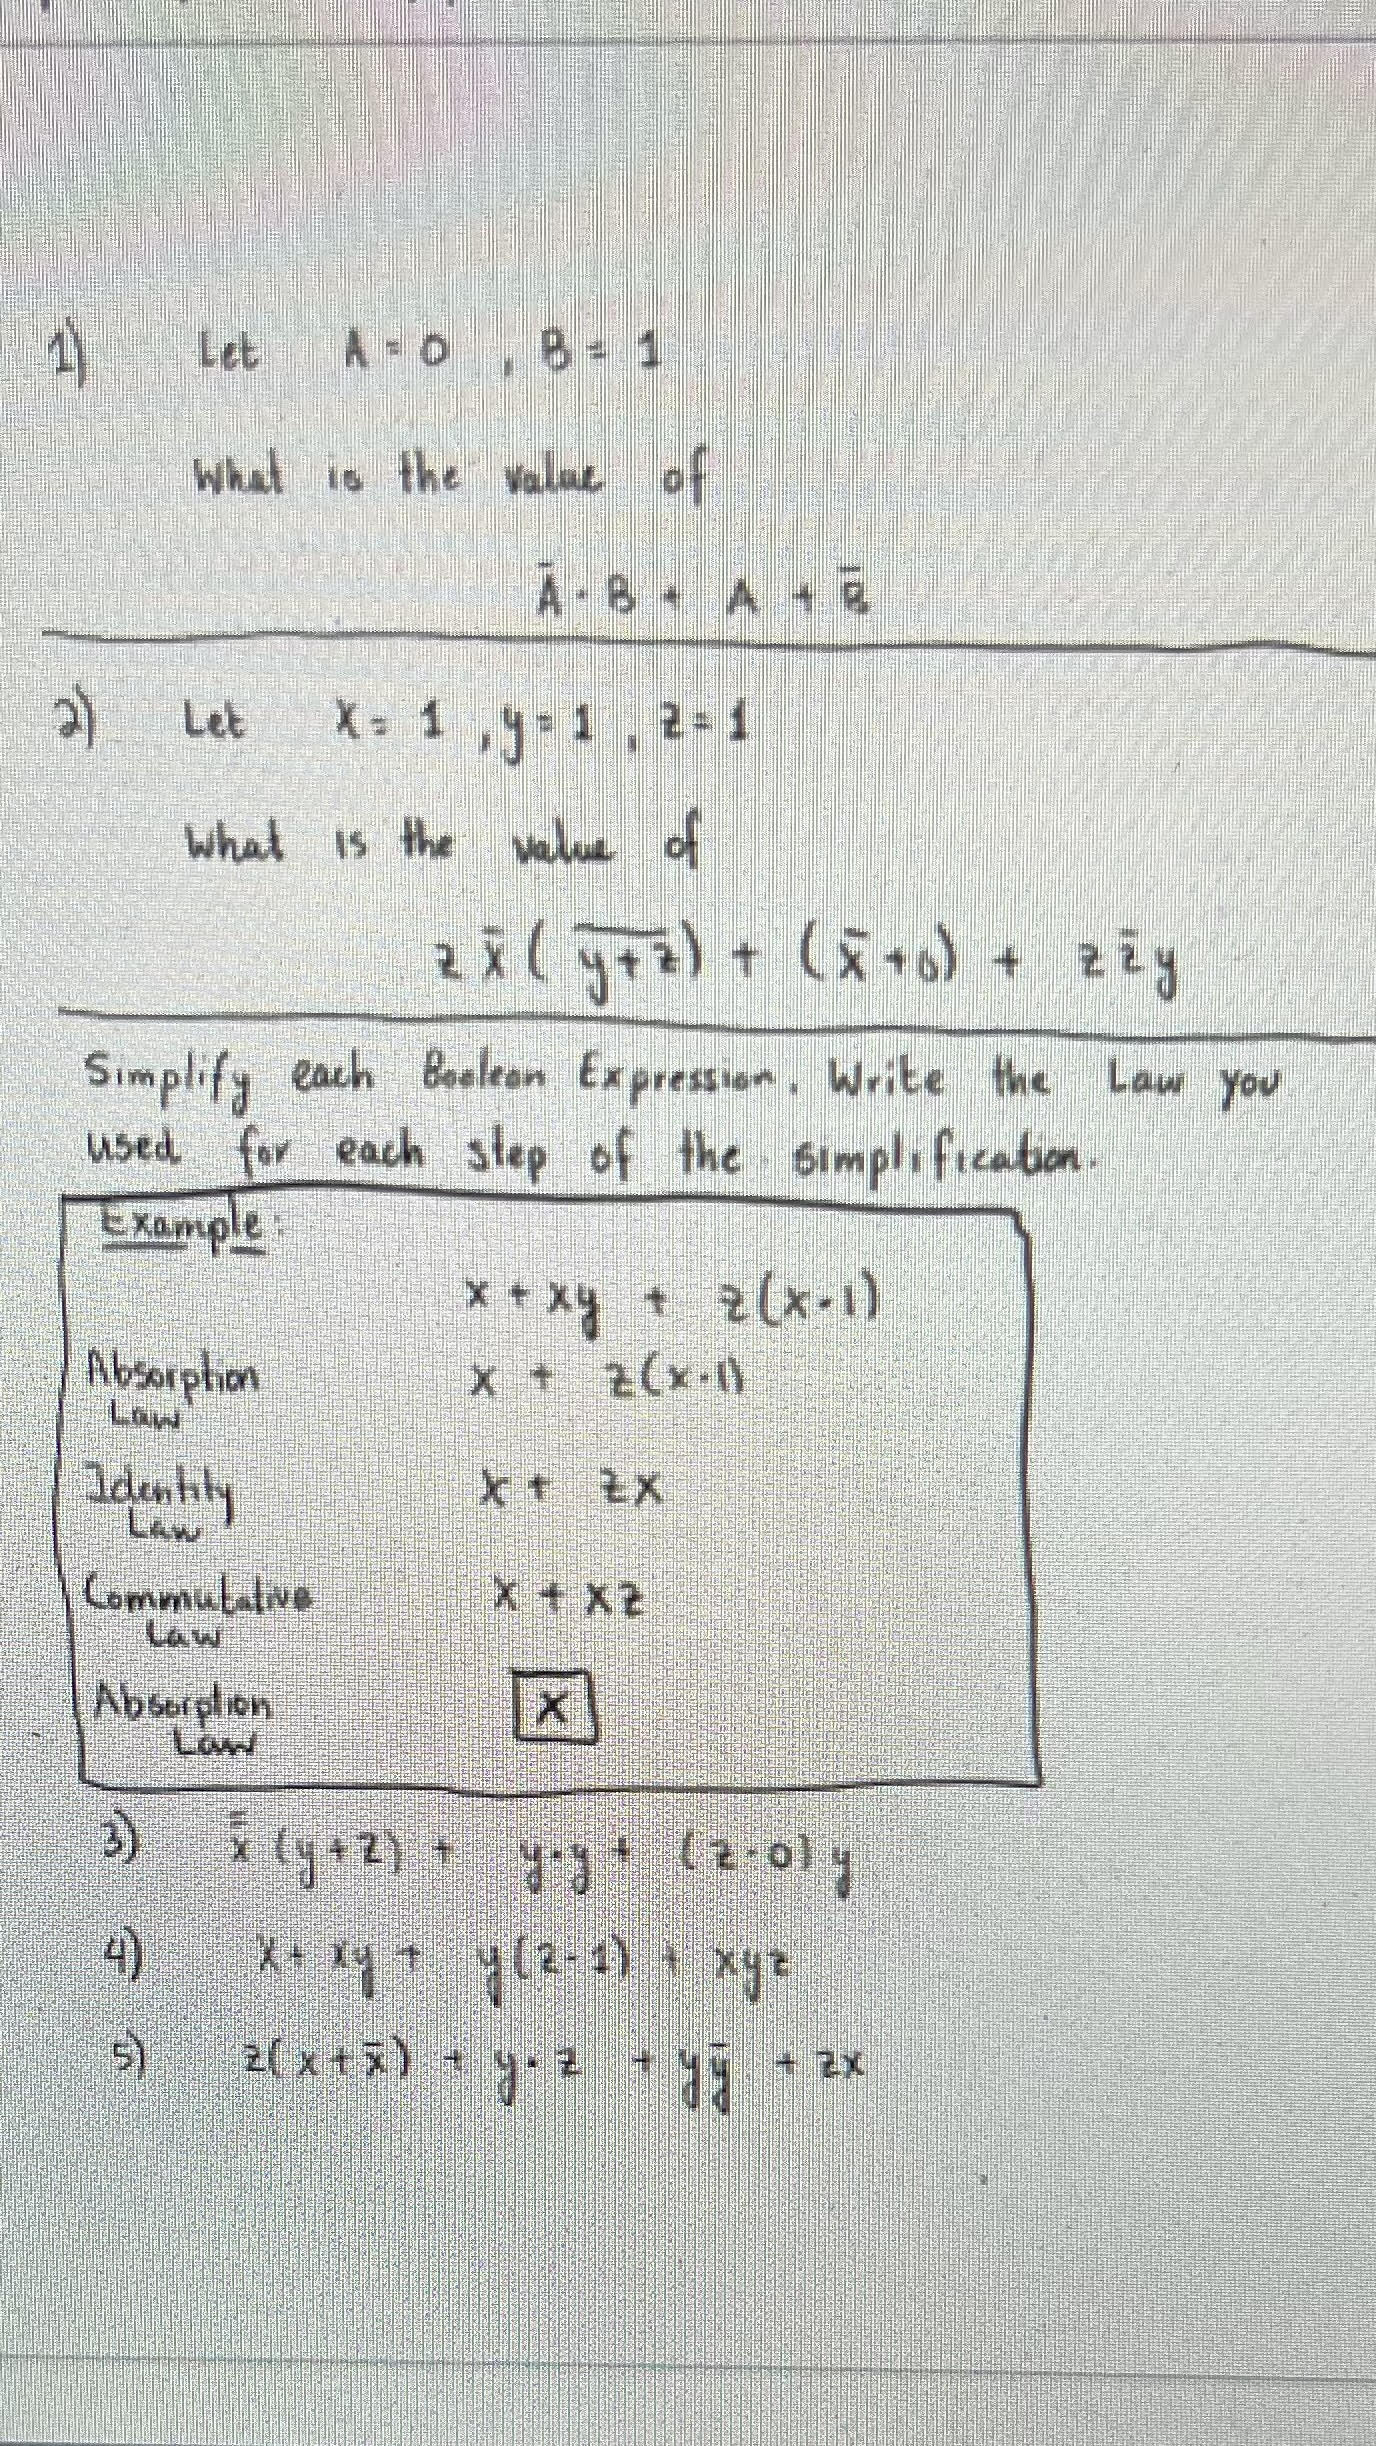 1) Let A = 0 , B = 1
What is the value of
Ā · B + A + B̅
2) Let x = 1 , y = 1 , z = 1
What is the value of
z x̄ ( y̅+̅z̅ ) + ( x̄ + 0 ) + z z̄ y
Simplify each Boolean Expression. Write the Law you
used for each step of the simplification.
Example:
x + xy + z(x·1)
Absorption x + z(x·1)
Law
Identity x + zx
Law
Commutative x + xz
Law
Absorption x
Law
3) x̿ (y+z) + y·y + (z·0) y
4) x + xy + y(z·1) + xyz
5) z(x+x̄) + y·z + yȳ + zx